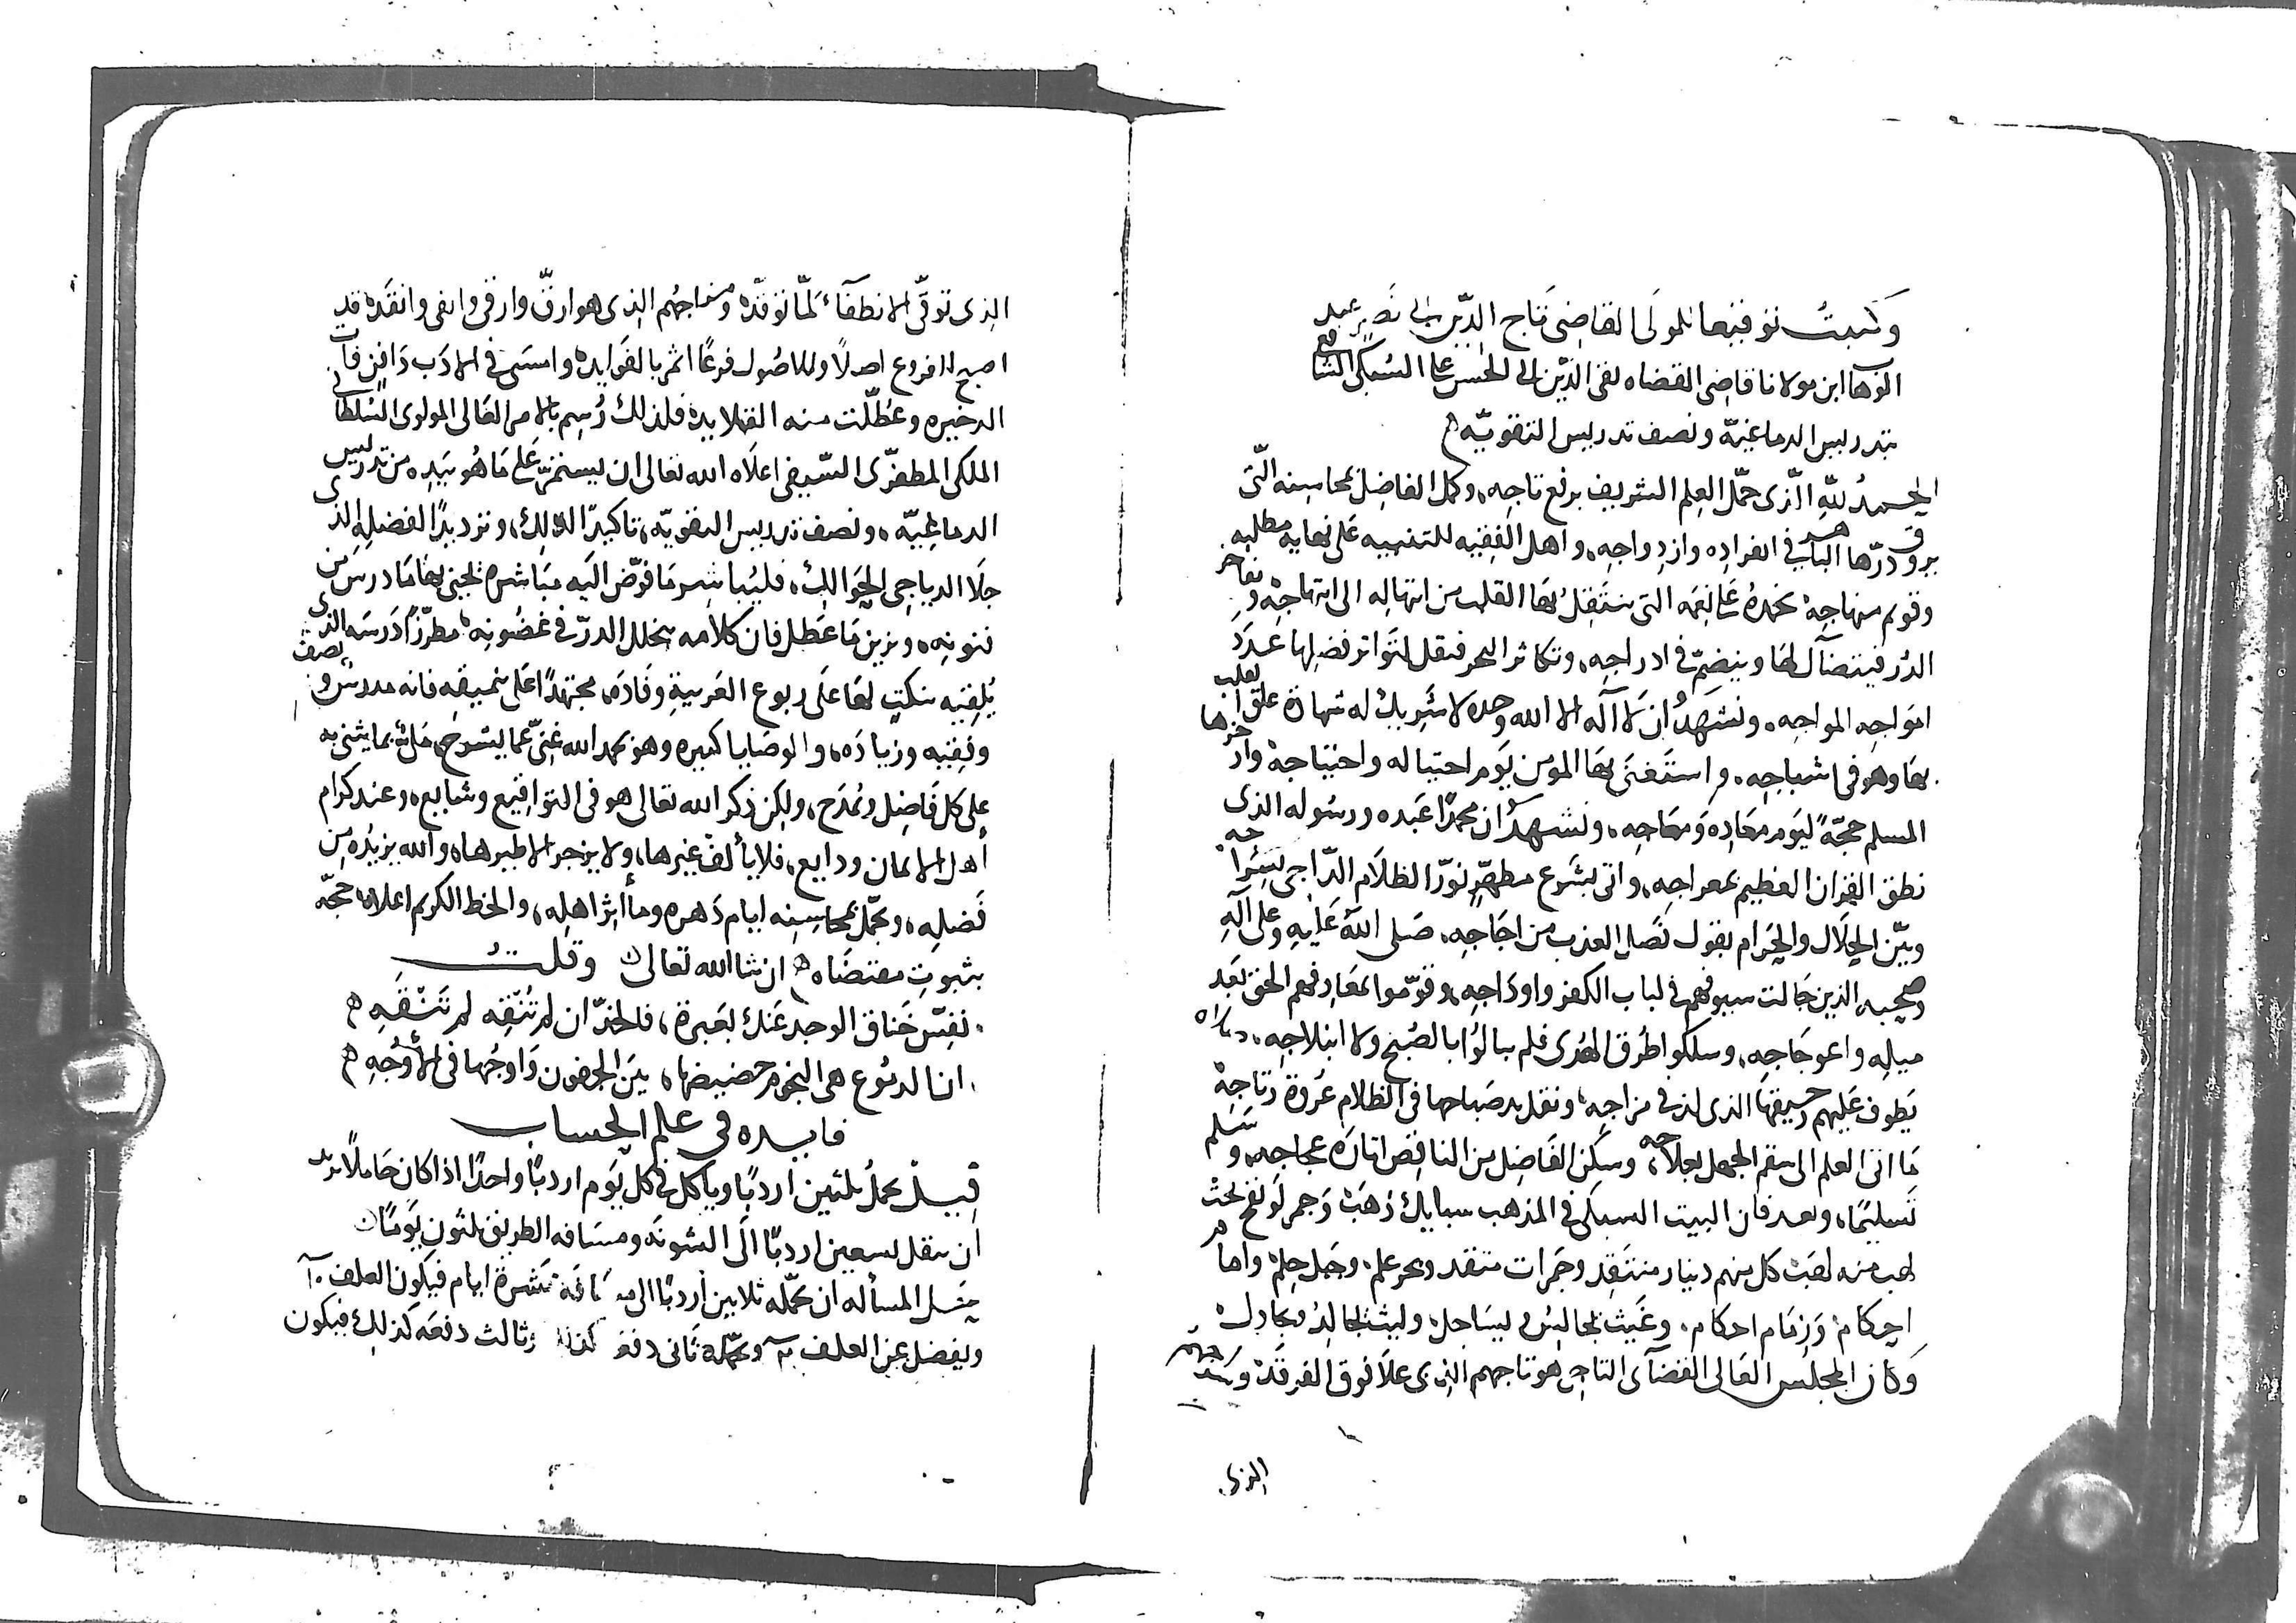 وكتبتُ توقيعا للمولى القاضى تاج الدين ابى نصر عبد
الوهاب ابن مولانا قاضى القضاه تقى الدين ابى الحسن على السبكى الشافعى
بتدريس الدماغيّه ونصف تدريس التقويّه
الحمدُ للهِ الّذى جمّل العِلم الشريف برفع تاجِه، وكمل الفاضِل بمحاسِنه الّتى
فى انفرادِه وازدِواجِه، واهل الفقيه للتنبيه على نهايه مطلبه
وقويم منهاجِه نحمدهُ على نِعَمه التى ينتقِلُ بها القلب من ابتهالِه الى ابتهاجِه وتفاخر
الدُر فيتضآل لها وينضمّ فى ادراجِه، وتكاثر البحر فتقل لتواتر فضلِها عدَدَ
امواجِه المواجِه، ونشهدُ ان لا آله الا الله وحده لا شريك له شهادة
بها وهو فى امشاجِه، واستغنى بها المومن يوم احتياله واحتياجِه وادّخرها
المسلم حجّة ليوم معادِه ومعاجِه، ونشهدُ ان محمدًا عبده ورسوله الذى
نطق القران العظيم بمعراجِه، واتى بشرع مطهّرٍ نوّر الظلام الدّاجى بسراجه
وبيّن الحلال والحرام بقول فصل العذب من اجاجِه، صلى الله عليه وعلى آله
وصحبه الذين جالت سيوفهم فى لباب الكفر واوداجِه، وقوّموا بمعارفهم الحق بعد
ميلِه واعوجاجِه، وسلكوا طرق الهُدى فلم يبالوا بالصُبح ولا ابتلاجِه، صلاه
يطوف عليهم رحيقها الذى لذ فى مزاجِه، ونقلد صباحها فى الظلام عروة رتاجِه
ما اتى العلم الى سقم الجهل بعلاجه، وسكن الفاضِل من الناقِص اثارَة عجاجه، وسلم
تسليما، وبعد فان البيت السبكى فى المذهب سبايك ذهب وجمر لو نفخت
لهب منه لهبت كل منهم دينار منتقد وجمرات متقد وبحر علم، وجبل حِلم، وامام
احكام، وزمام احكام، وغيث لمجالس وليث لمجالد ومجادل
وكان المجلس العالى القضآى التاجى هو تاجهم الذى علا فوق الفرقد
الذى
الذى توقى الانطفآء لمّا توقده ومنهاجُهم الذى هو ارقّ وارقى وانقى وانقده قد
اصبح للفروع اصلًا وللاصُول فرعًا اثمر بالفوايد، وامسى فى الادب
الدخيره وعُطّلت منه القلايد، فلذلك رُسِم بالامر العالى المولوى السُلطانى
الملكى المظفّرى السّيفى اعلاه الله تعالى ان يستمرّ على ما هُو بيده من تدريس
الدماغيّه، ونصف تدريس التقويّه، تاكيدًا لذلك، وترديدًا لفضلِه الذى
جلا الدياجى الحوالك، فليُباشِر ما فوّض اليه مباشره تجنى بها ما درس من
فنونِه، ويزين ما عطل فان كلامه يخلل الدرّ فى غضُونِه، مطرّزًا درسَه الذى
يُلقِيه بنكتٍ لها على ربوع العربيةِ وفادَه، مجتهدًا على تنميقِه فانه مدرس ونصف
وفقيه وزيادَه، والوصايا كثيره وهو بحمد الله غنىّ عما يشرح، ملئ بما يثنى به
على كل فاضِل ويُمدَح، ولكن ذكر الله تعالى هو فى التواقيع وشايع، وعند كرام
أهل الايمان ودايع، فلا يألف غيرها، ولا يزجر الا طيرها، والله يزيدُه من
فضلِه، ويجمّل بمحاسِنِه ايام دهره ومأاثر اهلِه، والخط الكريم اعلاه حجّه
بثبوتِ مقتضاه ان شا الله تعالى وقلت
نفِّس خناق الوجد عنك بعَبرة، فالحزّ ان لم تُنْقِه لم تَنْقَهِ
انا لدموع هى النجوم حضيضها، بين الجفون واوجُها فى الأوجُهِ
فايده فى علم الحساب
قيل جمل يحمل ثلثين اردبًا وياكل فى كل يوم اردبًا واحدًا اذا كان حاملًا نريد
ان ينقل تسعين اردبًا الى الشونَه ومسافه الطريق ثلثون يومًا
المسأله ان يحمّله ثلاثين أردبًا الى مسافة عشرة ايام فيكون العلف ١٠
ويفضل عن العلف ٢٠ ويحمّله ثانى دفعه كذلك وثالث دفعَه كذلِك فيكون